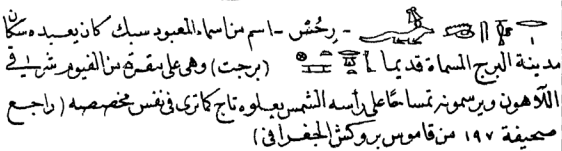 - رحُسْ - اسم من اسماء المعبود سبك كان يعبده سكان
مدينة البرج المسماة قديما (برجت) وهى على مقربة من الفيوم شرقى
اللاهون ويرسمونه تمساحًا على رأسه الشمس يعلوه تاج كما ترى فى نفس مخصصه (راجع
صحيفة ١٩٧ من قاموس بروكش الجغرافى)